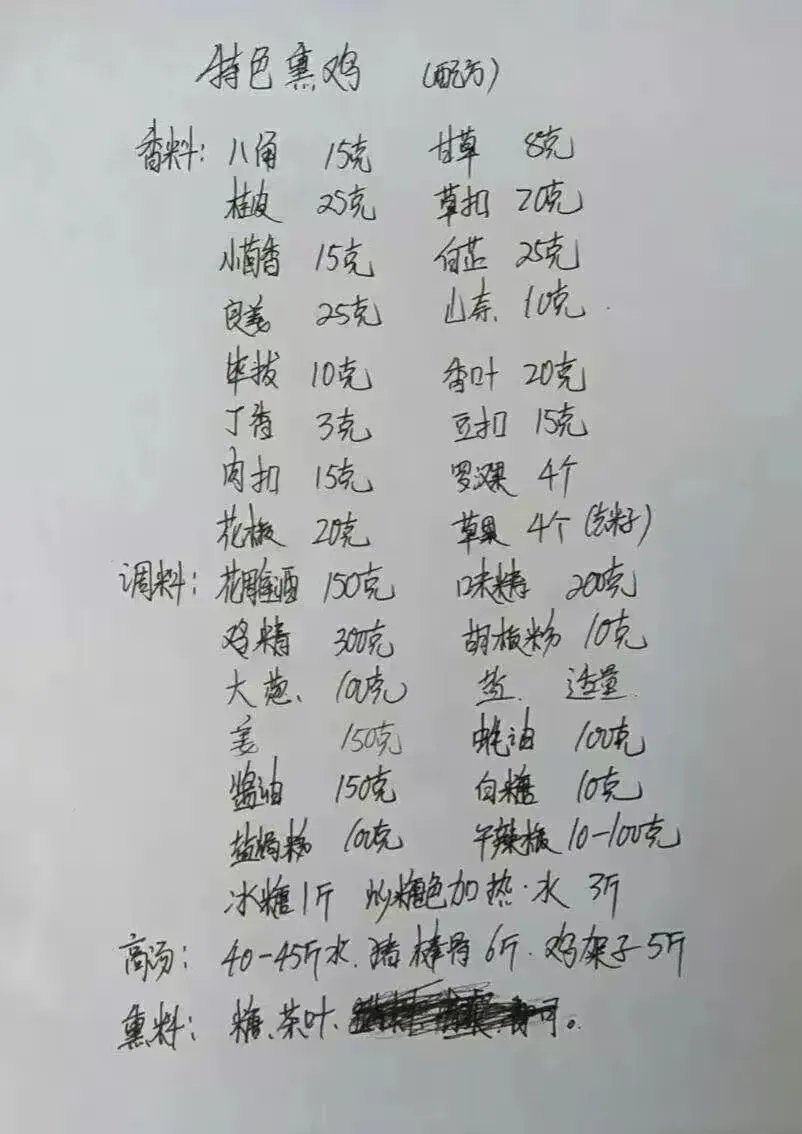 特色熏鸡 (配方)
香料: 八角 15克 甘草 8克
桂皮 25克 草扣 20克
小茴香 15克 白芷 25克
良姜 25克 山奈 10克
毕拔 10克 香叶 20克
丁香 3克 豆扣 15克
肉扣 15克 罗汉果 4个
花椒 20克 草果 4个(去籽子)
调料: 花雕酒 150克 味精 200克
鸡精 300克 胡椒粉 10克
大葱、 100克 盐. 适量
姜 150克 蚝油 100克
酱油 150克 白糖 10克
盐焗粉 100克 干辣椒 10-100克
冰糖1斤 炒糖色加热·水 3斤
高汤: 40-45斤水、猪棒骨6斤·鸡架子5斤
熏料: 糖、茶叶、